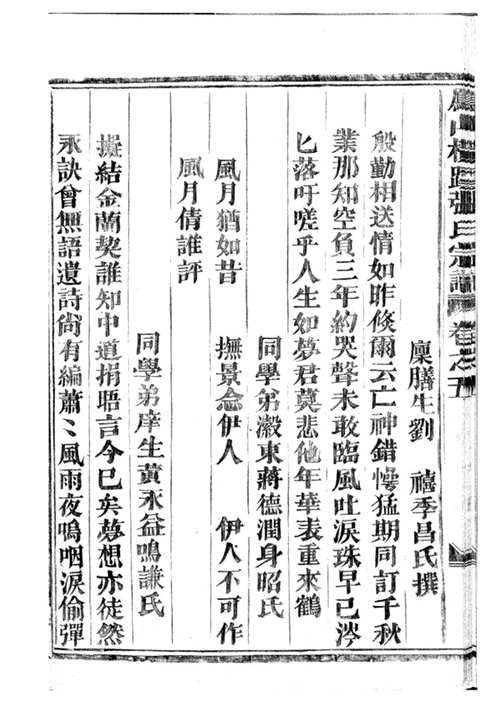 張氏宗譜 卷之五
廩膳生劉 禧季昌氏撰
殷勤相送情如昨倐爾云亡神錯愕猛期同訂千秋
業那知空負三年約哭聲未敢臨風吐淚珠早已涔
匕落吁嗟乎人生如夢君莫悲他年華表重來鶴
同學弟澂東蔣德潤身昭氏
風月猶如昔 撫景念伊人 伊人不可作
風月倩誰評
同學弟庠生黃永益鳴謙氏
擬結金蘭契誰知中道捐晤言今已矣夢想亦徒然
永訣曾無語遺詩尙有編蕭〻風雨夜嗚咽淚偷彈